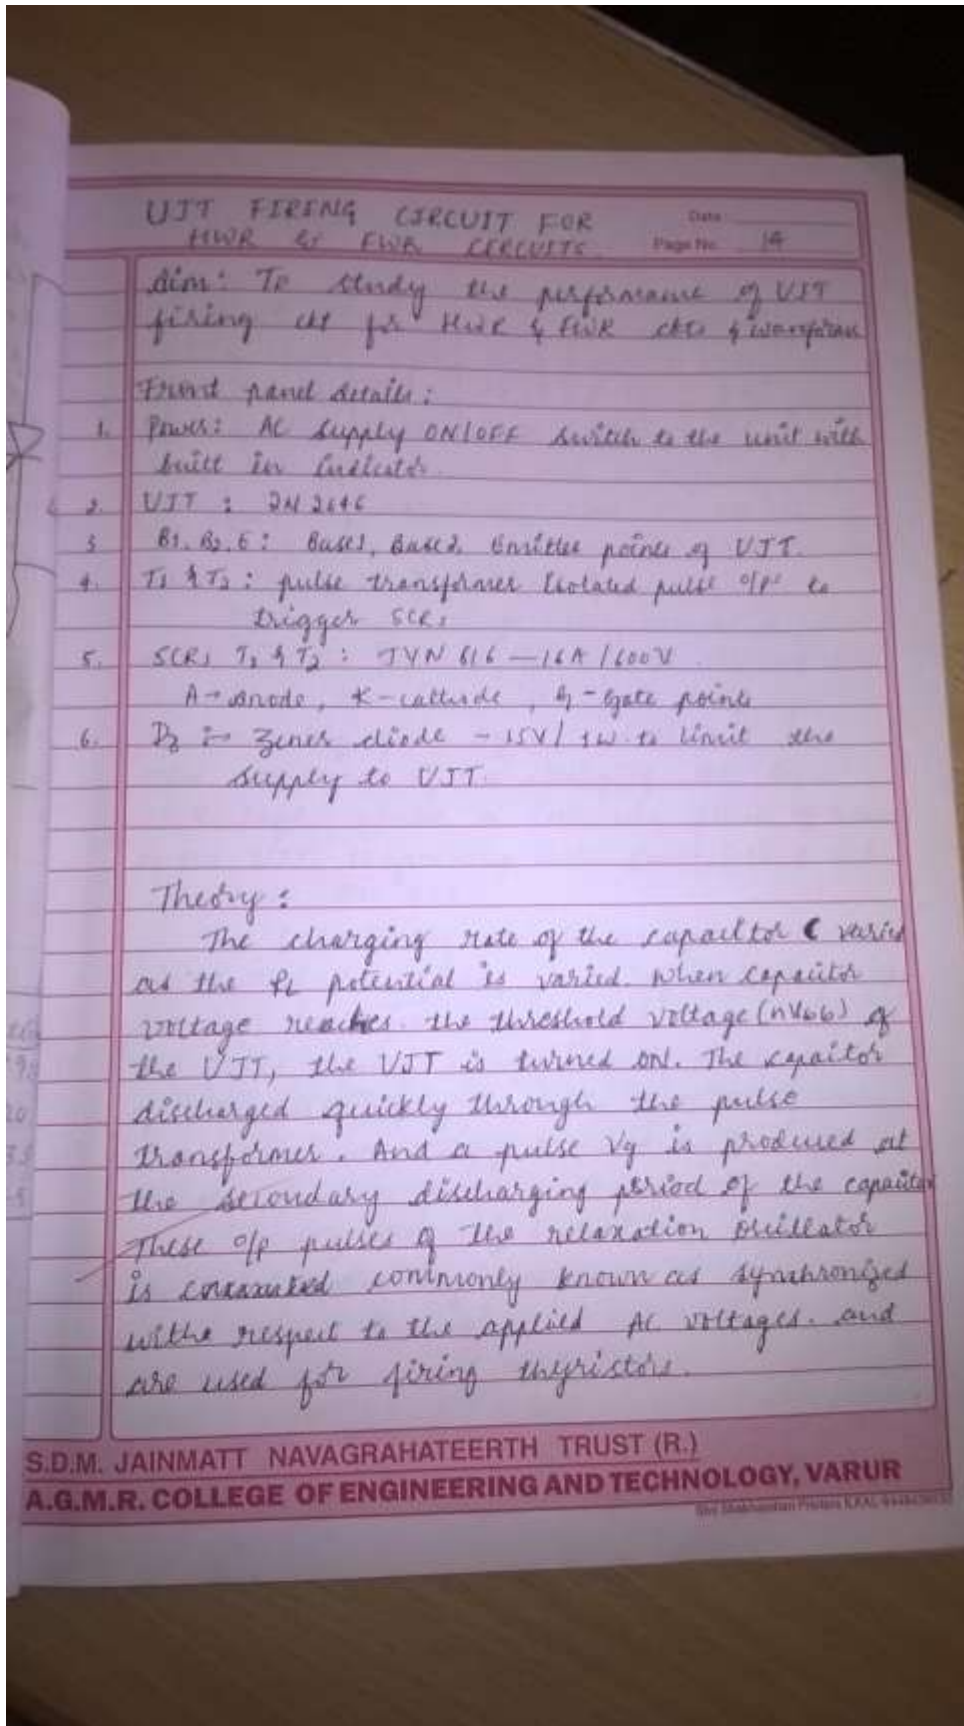 UJT FIRING CIRCUIT FOR
HWR & FWR CIRCUITS.
Date
Page No. 14
Aim: To study the performance of UJT
firing ckt for HWR & FWR ckts & waveform
Front panel details:
1. Power: AC supply ON/OFF switch to the unit with
built in indicator.
2. UJT : 2N 2646
3 B1, B2, E: Base1, Base2, Emitter points of UJT.
4. T1 & T2 : pulse transformer isolated pulse o/ps to
trigger SCRs
5. SCRs T1 & T2 : TYN 616 – 16A / 600V
A → Anode, K – cathode, G – gate points
6. Dz :- zener diode – 15V/ 1W to limit the
supply to UJT.
Theory :
The charging rate of the capacitor C varied
as the potential is varied. When capacitor
voltage reaches the threshold voltage (nVbb) of
the UJT, the UJT is turned on. The capaitor
discharged quickly through the pulse
transformer. And a pulse Vg is produced at
the secondary discharging period of the capacitor
These o/p pulses of the relaxation oscillator
is commonly known as synchronized
withe respect to the applied AC voltages. and
are used for firing thyristors.
S.D.M. JAINMATT NAVAGRAHATEERTH TRUST (R.)
A.G.M.R. COLLEGE OF ENGINEERING AND TECHNOLOGY, VARUR